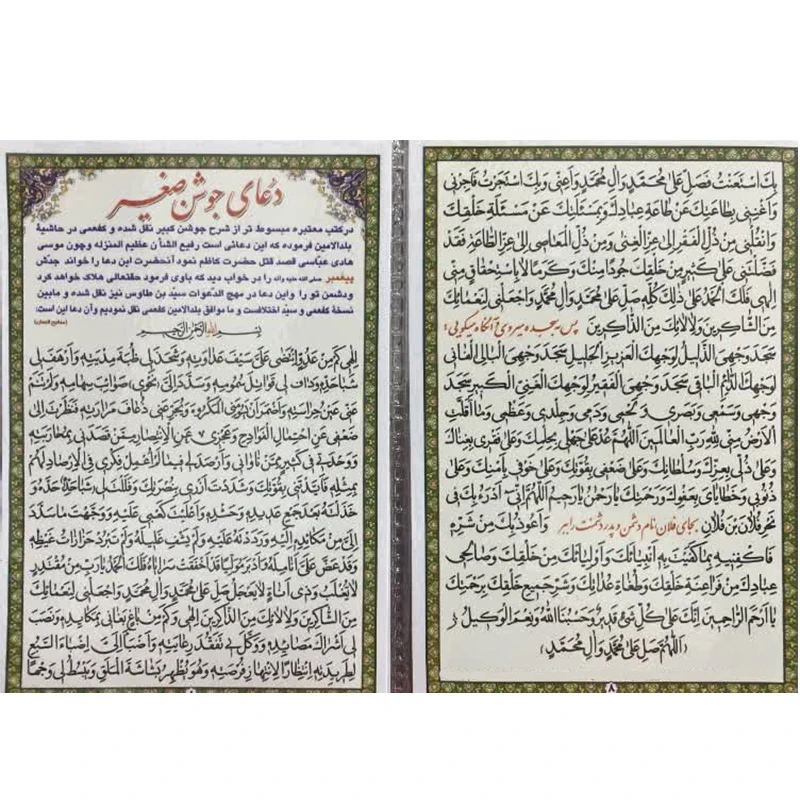 دعای جوشن صغیر
در کتب معتبره مبسوط تر از شرح جوشن کبیر نقل شده و کفعمی در حاشیهٔ
بلدالامین فرموده که این دعائی است رفیع الشأن عظیم المنزله و چون موسی
هادی عبّاسی قصد قتل حضرت کاظم نمود آنحضرت این دعا را خواند جدّش
پیغمبر صلی الله علیه واله را در خواب دید که باوی فرمود حقتعالی هلاک خواهد کرد
دشمن تو را و این دعا در مهج الدّعوات سیّد بن طاوس نیز نقل شده و مابین
نسخهٔ کفعمی و سیّد اختلافست و ما موافق بلدالامین کفعمی نقل نمودیم وآن دعا این است:
بسم الله الرحمن الرحیم
اِلهی کَمْ مِنْ عَدُوٍّ انْتَضی عَلَیَّ سَیْفَ عَداوَتِهِ وَشَحَذَ لی ظُبَةَ مُدْیَتِهِ وَاَرْهَفَ لی
شَباحَدِّهِ وَدافَ لی قَواتِلَ سُمُومِهِ وَسَدَّدَ اِلَیَّ صَوائِبَ سِهامِهِ وَلَمْ تَنَمْ
عَنّی عَیْنُ حِراسَتِهِ وَاَضْمَرَ اَنْ یَسُومَنِی الْمَکْرُوهَ وَیُجَرِّعَنی ذُعافَ مَرارَتِهِ نَظَرْتَ اِلی
ضَعْفی عَنِ احْتِمالِ الْفَوادِحِ وَعَجْزی عَنِ الاِنْتِصارِ مِمَّنْ قَصَدَنی بِمُحارَبَتِهِ
وَوَحْدَتی فی کَثیرٍ مِمَّنْ ناوانی وَاَرْصَدَ لی فیما لَمْ اُعْمِلْ فِکْری فِی الاِرْصادِ لَهُمْ
بِمِثْلِهِ فَاَیَّدْتَنی بِقُوَّتِکَ وَشَدَدْتَ اَزْری بِنُصْرَتِکَ وَفَلَلْتَ لی شَباحَدِّهِ وَ
خَذَلْتَهُ بَعْدَ جَمْعِ عَدیدِهِ وَحَشْدِهِ وَاَعْلَیْتَ کَعْبی عَلَیْهِ وَوَجَّهْتَ ماسَدَّدَ
اِلَیَّ مِنْ مَکائِدِهِ اِلَیْهِ وَرَدَدْتَهُ عَلَیْهِ وَلَمْ یَشْفِ غَلیلَهُ وَلَمْ تَبْرُدْ حَزازاتُ غَیْظِهِ
وَقَدْ عَضَّ عَلَیَّ اَنامِلَهُ وَاَدْبَرَ مُوَلِّیاً قَدْ اَخْفَقَتْ سَرایاهُ فَلَکَ الْحَمْدُ یارَبِّ مِنْ مُقْتَدِرٍ
لایُغْلَبُ وَذی اَناةٍ لایَعْجَلُ صَلِّ عَلی مُحَمَّدٍ وَآلِ مُحَمَّدٍ وَاجْعَلْنی لِنَعْمائِکَ
مِنَ الشّاکِرینَ وَلِآلائِکَ مِنَ الذّاکِرینَ اِلهی وَکَمْ مِنْ باغٍ بَغانی بِمَکائِدِهِ وَنَصَبَ
لی اَشْراکَ مَصائِدِهِ وَوَکَّلَ بی تَفَقُّدَ رِعایَتِهِ وَاَضْبَأَ اِلَیَّ اِضْباءَ السَّبُعِ
لِطَریدَتِهِ اِنْتِظاراً لاِنْتِهازِ فُرْصَتِهِ وَهُوَ یُظْهِرُ بَشاشَةَ الْمَلَقِ وَیَبْسُطُ لی وَجْهاً
بِکَ اسْتَعَنْتُ فَصَلِّ عَلی مُحَمَّدٍ وَآلِ مُحَمَّدٍ وَاَعِنّی وَبِکَ اسْتَجَرْتُ فَاَجِرْنی
وَاَغْنِنی بِطاعَتِکَ عَنْ طاعَةِ عِبادِکَ وَبِمَسْئَلَتِکَ عَنْ مَسْئَلَةِ خَلْقِکَ
وَانْقُلْنی مِنْ ذُلِّ الْفَقْرِ اِلی عِزِّ الْغِنی وَمِنْ ذُلِّ الْمَعاصی اِلی عِزِّ الطّاعَةِ فَقَدْ
فَضَّلْتَنی عَلی کَثیرٍ مِنْ خَلْقِکَ جُوداً مِنْکَ وَکَرَماً لا بِاسْتِحْقاقٍ مِنّی
اِلهی فَلَکَ الْحَمْدُ عَلی ذلِکَ کُلِّهِ صَلِّ عَلی مُحَمَّدٍ وَآلِ مُحَمَّدٍ وَاجْعَلْنی لِنَعْمائِکَ
مِنَ الشّاکِرینَ وَلِآلائِکَ مِنَ الذّاکِرینَ پس به سجده میروی و آنگاه میگویی:
سَجَدَ وَجْهِیَ الذَّلیلُ لِوَجْهِکَ الْعَزیزِ الْجَلیلِ سَجَدَ وَجْهِیَ الْبالی الْفانی
لِوَجْهِکَ الدّائِمِ الْباقی سَجَدَ وَجْهِیَ الْفَقیرُ لِوَجْهِکَ الْغَنِیِّ الْکَبیرِ سَجَدَ
وَجْهی وَسَمْعی وَبَصَری وَ لَحْمی وَدَمی وَجِلْدی وَعَظْمی وَما اَقَلَّتِ
الْاَرْضُ مِنّی لِلّهِ رَبِّ الْعالَمینَ اَللّهُمَّ عُدْ عَلی جَهْلی بِحِلْمِکَ وَعَلی فَقْری بِغِناکَ
وَعَلی ذُلّی بِعِزِّکَ وَسُلْطانِکَ وَعَلی ضَعْفی بِقُوَّتِکَ وَعَلی خَوْفی بِاَمْنِکَ وَعَلی
ذُنُوبی وَخَطایایَ بِعَفْوِکَ وَرَحْمَتِکَ یارَحْمنُ یارَحیمُ اَللّهُمَّ اِنّی اَدْرَءُ بِکَ فی
نَحْرِ فُلانِ بْنِ فُلانٍ بجای فلان نام دشمن و پدر دشمنت را ببر وَاَعُوذُبِکَ مِنْ شَرِّهِ
فَاکْفِنیهِ بِما کَفَیْتَ بِهِ اَنْبِیائَکَ وَاَوْلِیائَکَ مِنْ خَلْقِکَ وَصالِحی
عِبادِکَ مِنْ فَراعِنَةِ خَلْقِکَ وَطُغاةِ عُداتِکَ وَشَرِّ جَمیعِ خَلْقِکَ بِرَحْمَتِکَ
یااَرْحَمَ الرّاحِمینَ اِنَّکَ عَلی کُلِّ شَیْءٍ قَدیرٌ وَحَسْبُنَا اللّهُ وَنِعْمَ الْوَکیلُ
(اَللّهُمَّ صَلِّ عَلی مُحَمَّدٍ وَآلِ مُحَمَّدٍ)
۸